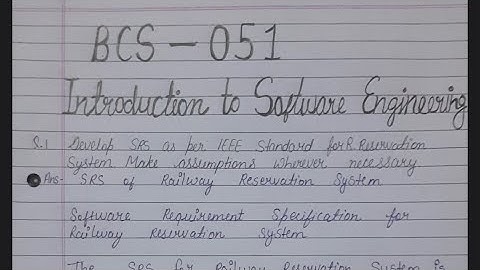 BCS - 051
Introduction to Software Engineering
Q.1 Develop SRS as per IEEE Standard for R. Reservation
System Make assumptions wherever necessary
Ans- SRS of Railway Reservation System
Software Requirement Specification for
Railway Reservation System
The SRS for Railway Reservation System is